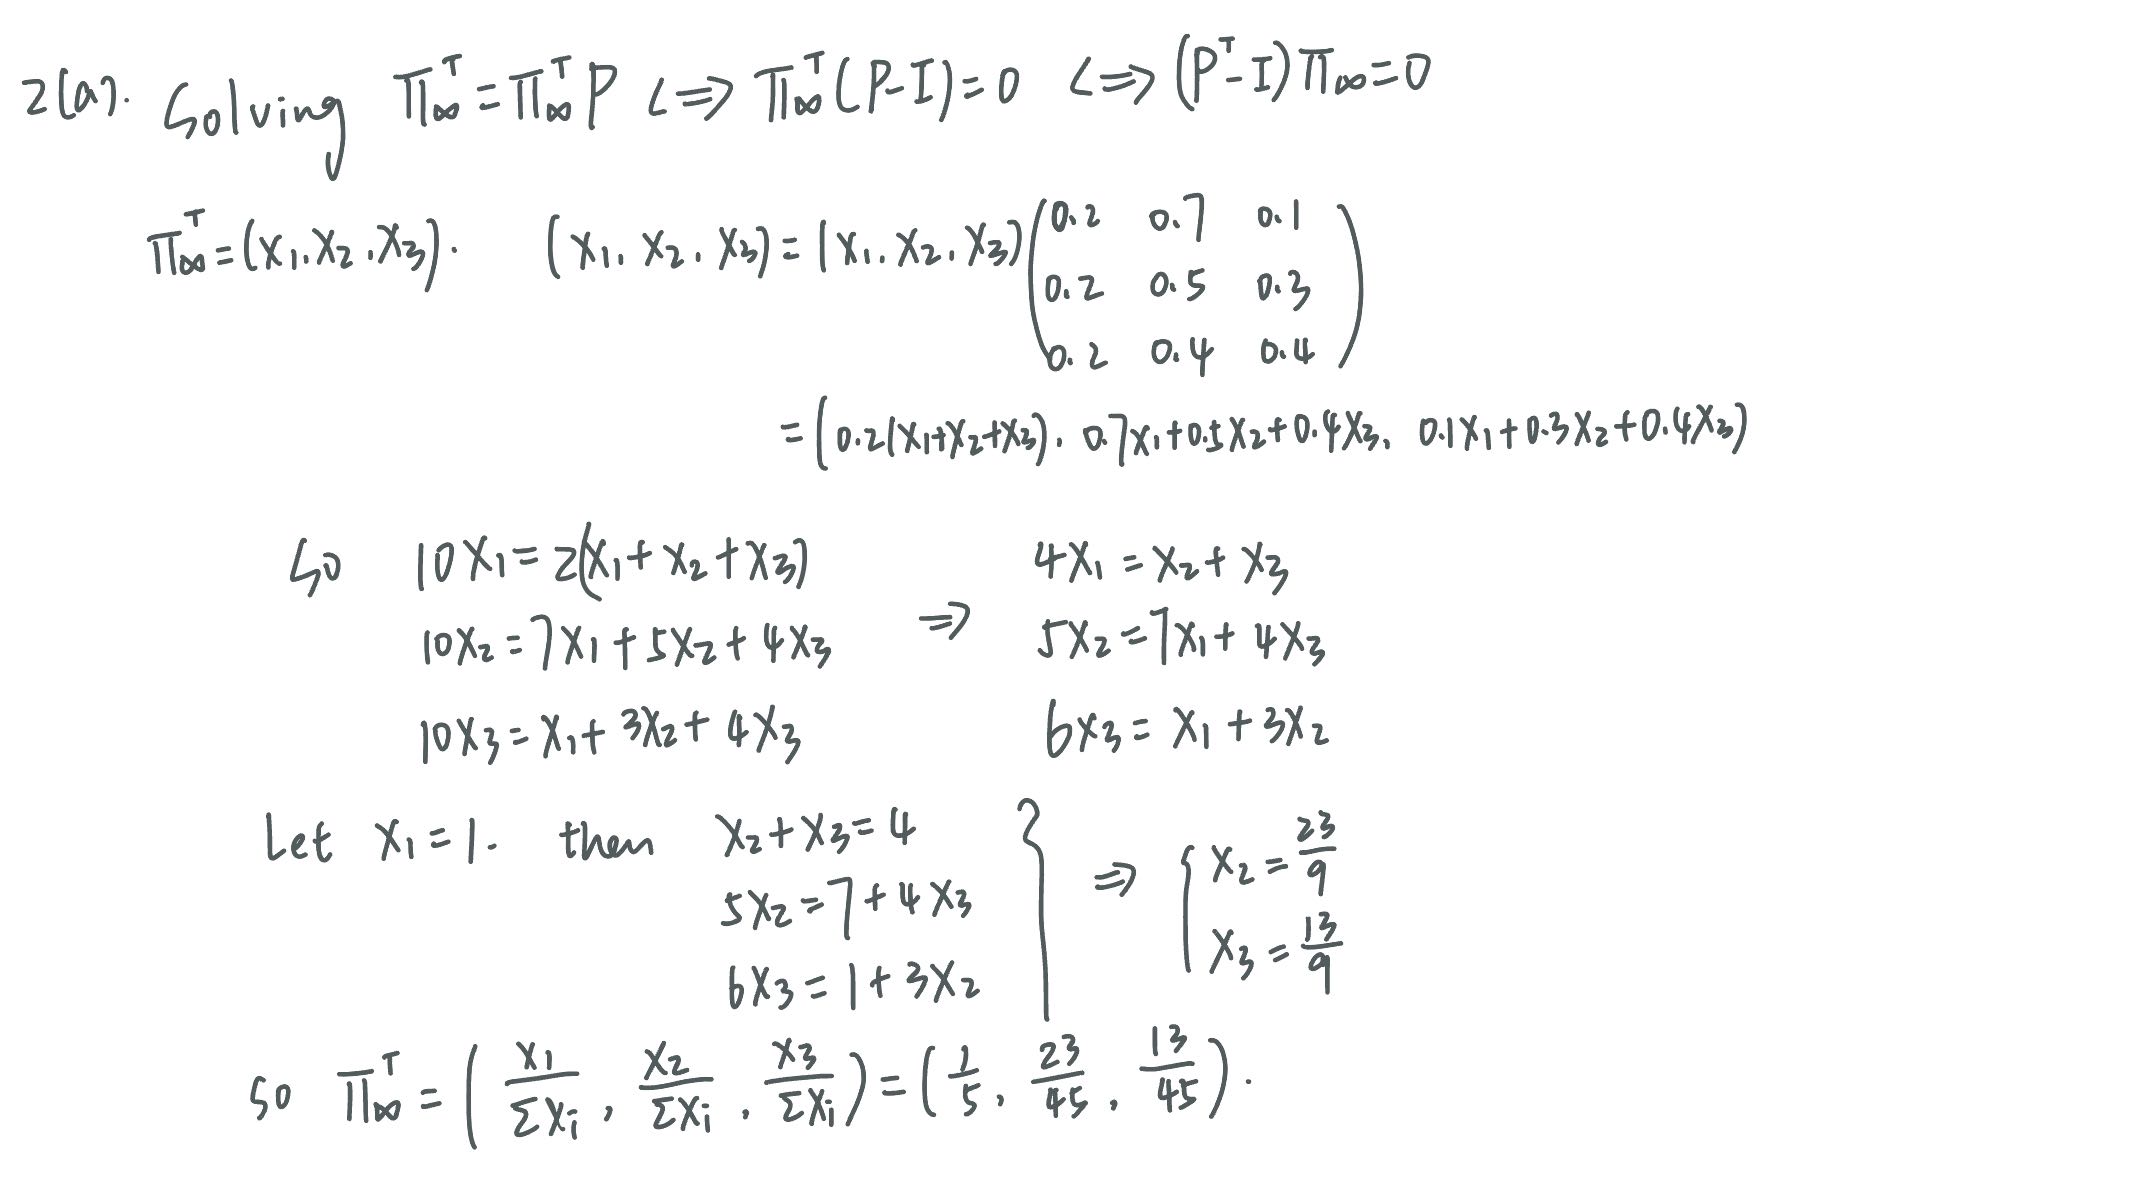 2(a). Solving Π∞^T = Π∞^T P <=> Π∞^T (P-I) = 0 <=> (P^T - I) Π∞ = 0
Π∞^T = (x1, x2, x3). (x1, x2, x3) = (x1, x2, x3) (0.2 0.7 0.1
0.2 0.5 0.3
0.2 0.4 0.4)
= (0.2(x1+x2+x3), 0.7x1+0.5x2+0.4x3, 0.1x1+0.3x2+0.4x3)
So 10x1 = 2(x1+x2+x3) 4x1 = x2+x3
10x2 = 7x1+5x2+4x3 => 5x2 = 7x1+4x3
10x3 = x1+3x2+4x3 6x3 = x1+3x2
Let x1 = 1. then x2+x3 = 4
5x2 = 7+4x3
6x3 = 1+3x2 } => { x2 = 23/9
x3 = 13/9
So Π∞^T = (x1/Σxi, x2/Σxi, x3/Σxi) = (1/5, 23/45, 13/45).